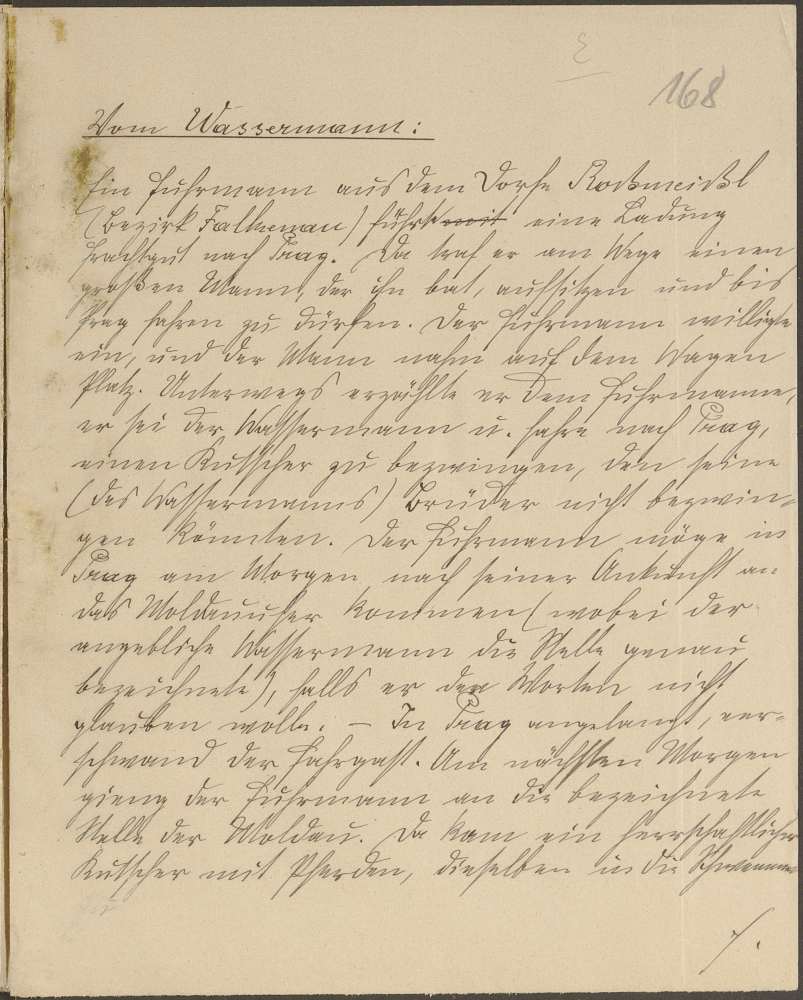 168
Vom Wassermann:
Ein Fuhrmann aus dem Dorfe Rockmeißl
(Bezirk Falkenau) führte mit eine Ladung
Frachtgut nach Prag. Da traf er am Wege einen
großen Mann, der ihn bat, aufsitzen und bis
Prag fahren zu dürfen. Der Fuhrmann willigte
ein, und der Mann nahm auf dem Wagen
Platz. Unterwegs erzählte er dem Fuhrmanne,
er sei der Wassermann u. fahre nach Prag,
einen Kutscher zu bezwingen, den seine
(des Wassermanns) Brüder nicht bezwin=
gen könnten. Der Fuhrmann möge in
Prag am Morgen, nach seiner Ankunft an
das Moldauufer kommen (wobei der
angebliche Wassermann die Stelle genau
bezeichnete), falls er den Worten nicht
glauben wolle. – In Prag angelangt, ver=
schwand der Fahrgast. Am nächsten Morgen
gieng der Fuhrmann an die bezeichnete
Stelle der Moldau. Da kam ein herrschaftlicher
Kutscher mit Pferden, dieselben in die Schwemme
/.